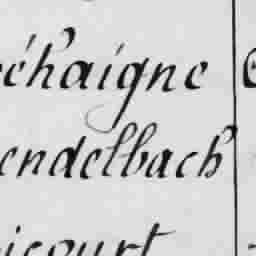 éhaigne
endelbach
icourt